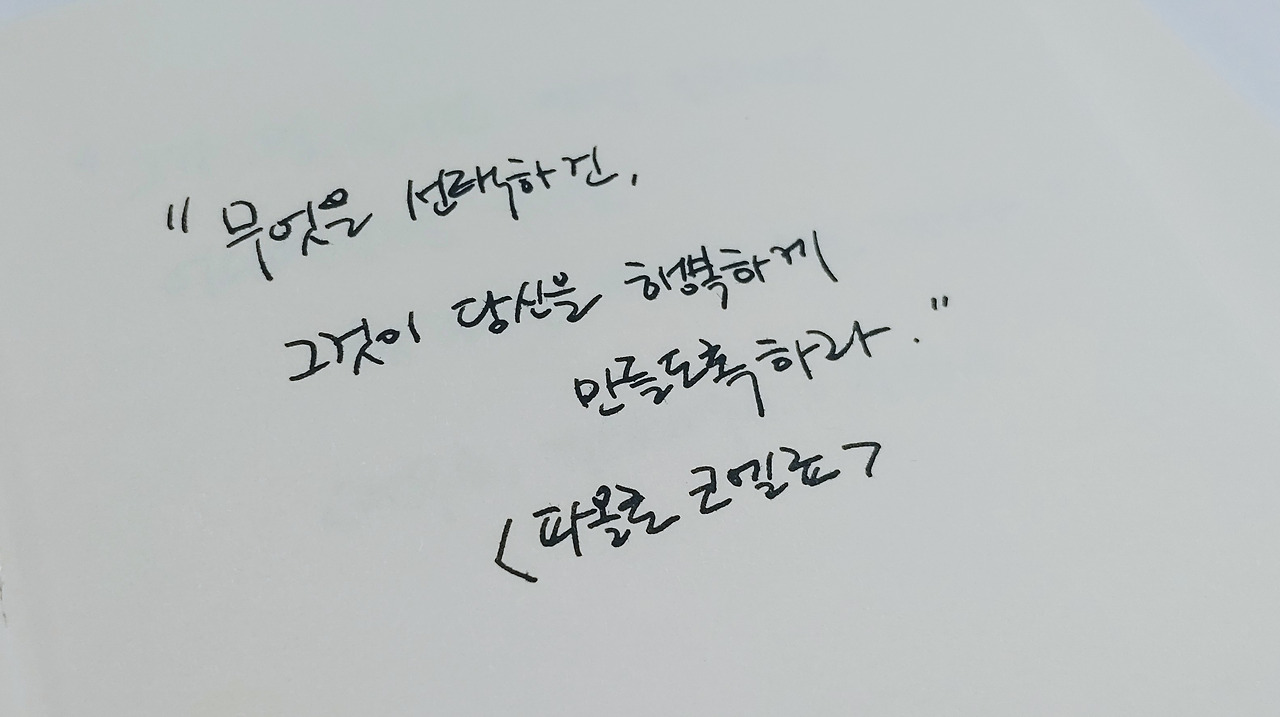 "무엇을 선택하건,
그것이 당신을 행복하게
만들도록 하라."
<파올로 코엘료>